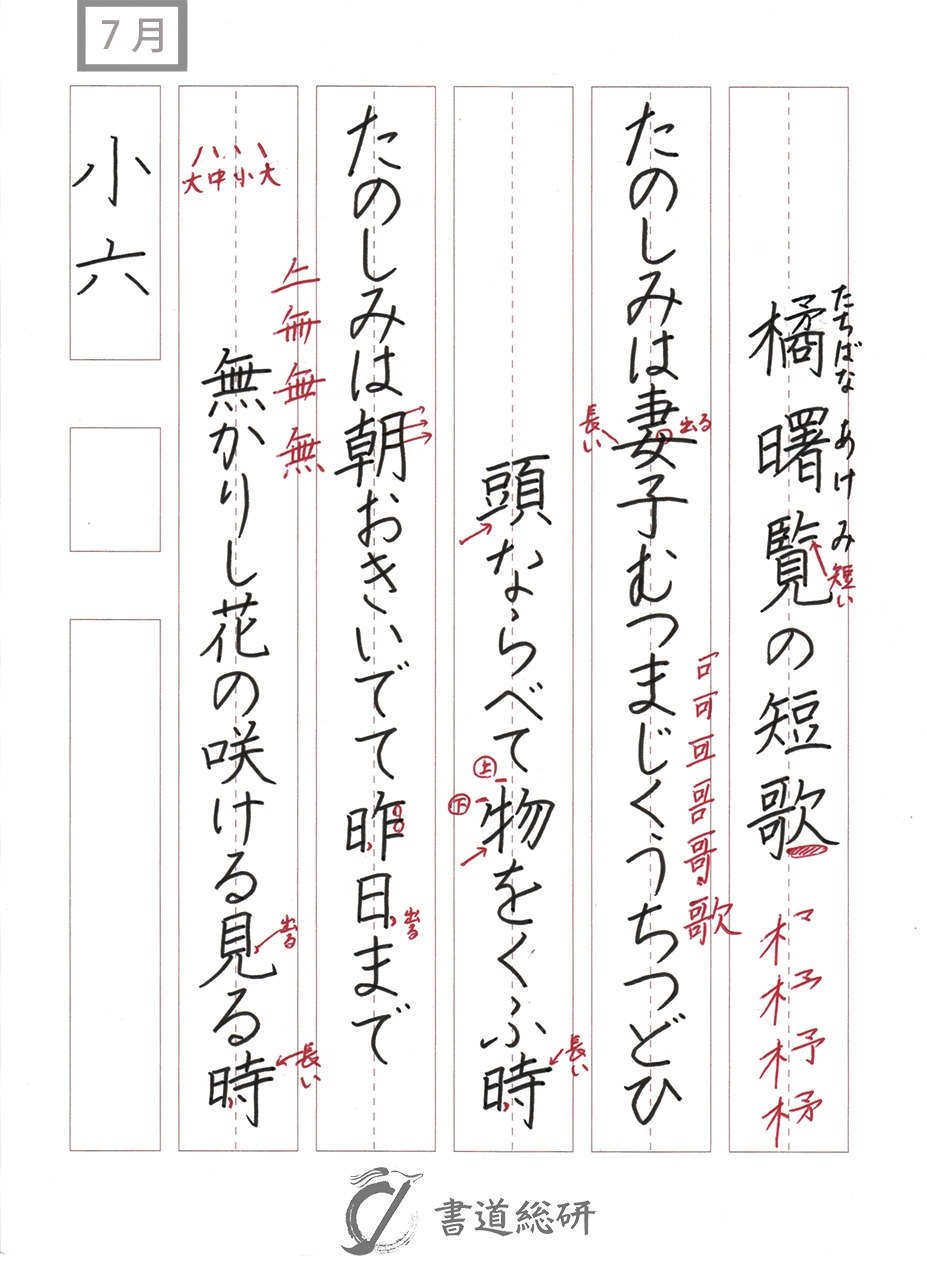 7月
橘曙覧の短歌
たちばな あけ み
短い
木マ
木 予
木予
木矛
たのしみは妻子むつまじくうちつどひ
出る
長い
可
歌
頭ならべて物をくふ時
上
下
長い
たのしみは朝おきいでて昨日まで
出る
無かりし花の咲ける見る時
大中小大
無
出る
長い
小六
書道総研